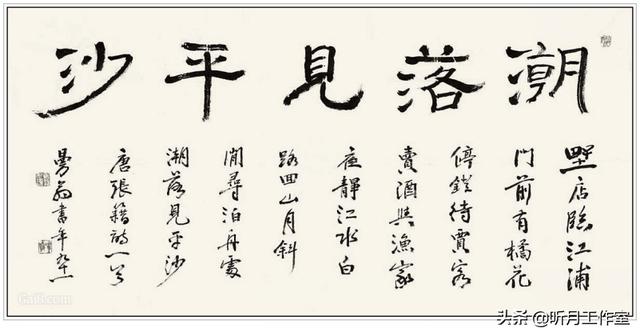 潮落見平沙
野店臨江浦
門前有橘花
停鐙待賈客
賣酒與漁家
夜靜江水白
路回山月斜
閒尋泊舟處
潮落見平沙
唐張籍詩一首
曼翁書年九十一
头条 @昕月工作室